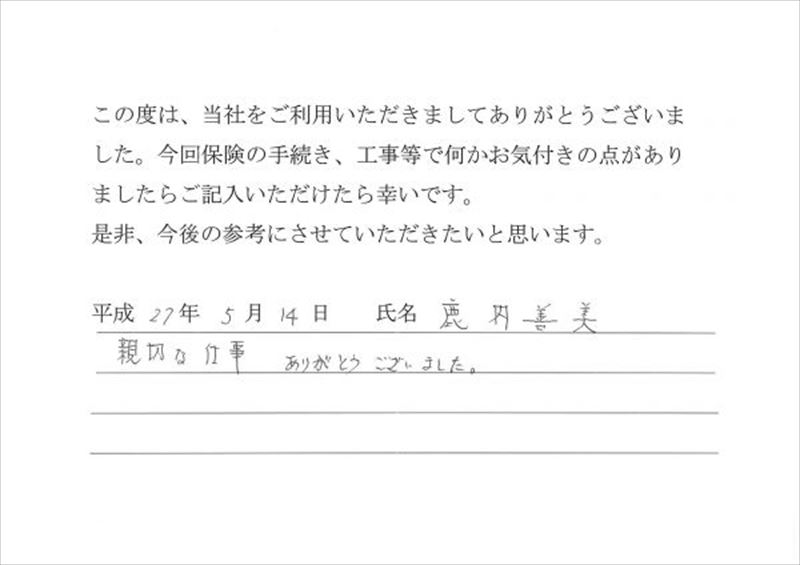 この度は、当社をご利用いただきましてありがとうございま
した。今回保険の手続き、工事等で何かお気付きの点があり
ましたらご記入いただけたら幸いです。
是非、今後の参考にさせていただきたいと思います。
平成 27年 5月 14日 氏名 鹿内善美
親切な仕事 ありがとうございました。